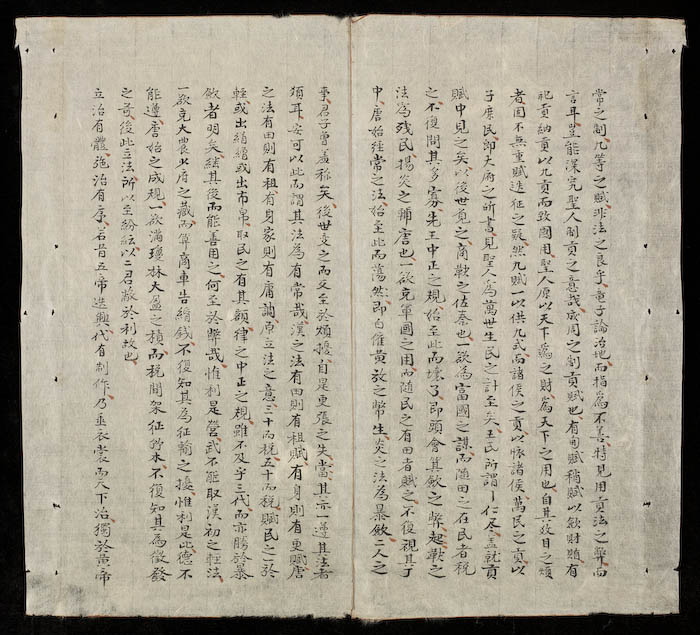 常之制九等之賦非法之良乎童子論治地而指為不善特見用貢法之弊而
言耳豈能深究聖人制貢之意哉成周之制貢賦也有甸賦稍賦以歛財賄有
祀貢納貢以九貢而致國用聖人原以天下為之財為天下之用也自其效目之煩
者固不無重賦遠征之疑然九賦一以供九式而諸侯之貢以懷諸侯萬民之貢以
子庶民即大府之所書見聖人為萬世生民之計至矣王氏所謂一仁尽盖就貢
賦中見之矣以後世觉之商鞅之佐秦也欲為富國之謀而隨田之在民者税
之不復問其多寡先王中正之規始至此而壊了即頭會箕歛之弊起鞅之
法為残民揚炎之輔唐也一欲克軍國之用而随民之有田者賦之不復視其丁
中唐始經常之法始至此而蕩然即白催黄放之幣生炎之法為暴歛二人之
事君子曾羞称矣後世支之而文至於煩擾自是更張之失當其亦一遵其法者
須耳安可以此而謂其法為有常哉漢之法有田則有租賦有身則有更賦唐
之法有田則有租有身家則有庸調原立法之意三十而税五十而税賦民之於
輕或出絹繒或出市帛取民之有其額律之中正之規雖不及乎三代而亦勝於暴
歛者明矣紘其後而能善用之何至於弊哉惟利是營武不能取漢初之軽法
一欲克大農少府之藏而算商車告緡錢不復知其為征輸之擾惟利是比德不
能遵唐始之成規一欲滿瓊林大盈之積而税間架征竹木不復知其為徴發
之苛後此立法所以至紛紜以二君敝於利故也
立治有體施治有序若昔五帝迭興代有制作乃垂衣裳而天下治獨於黄帝